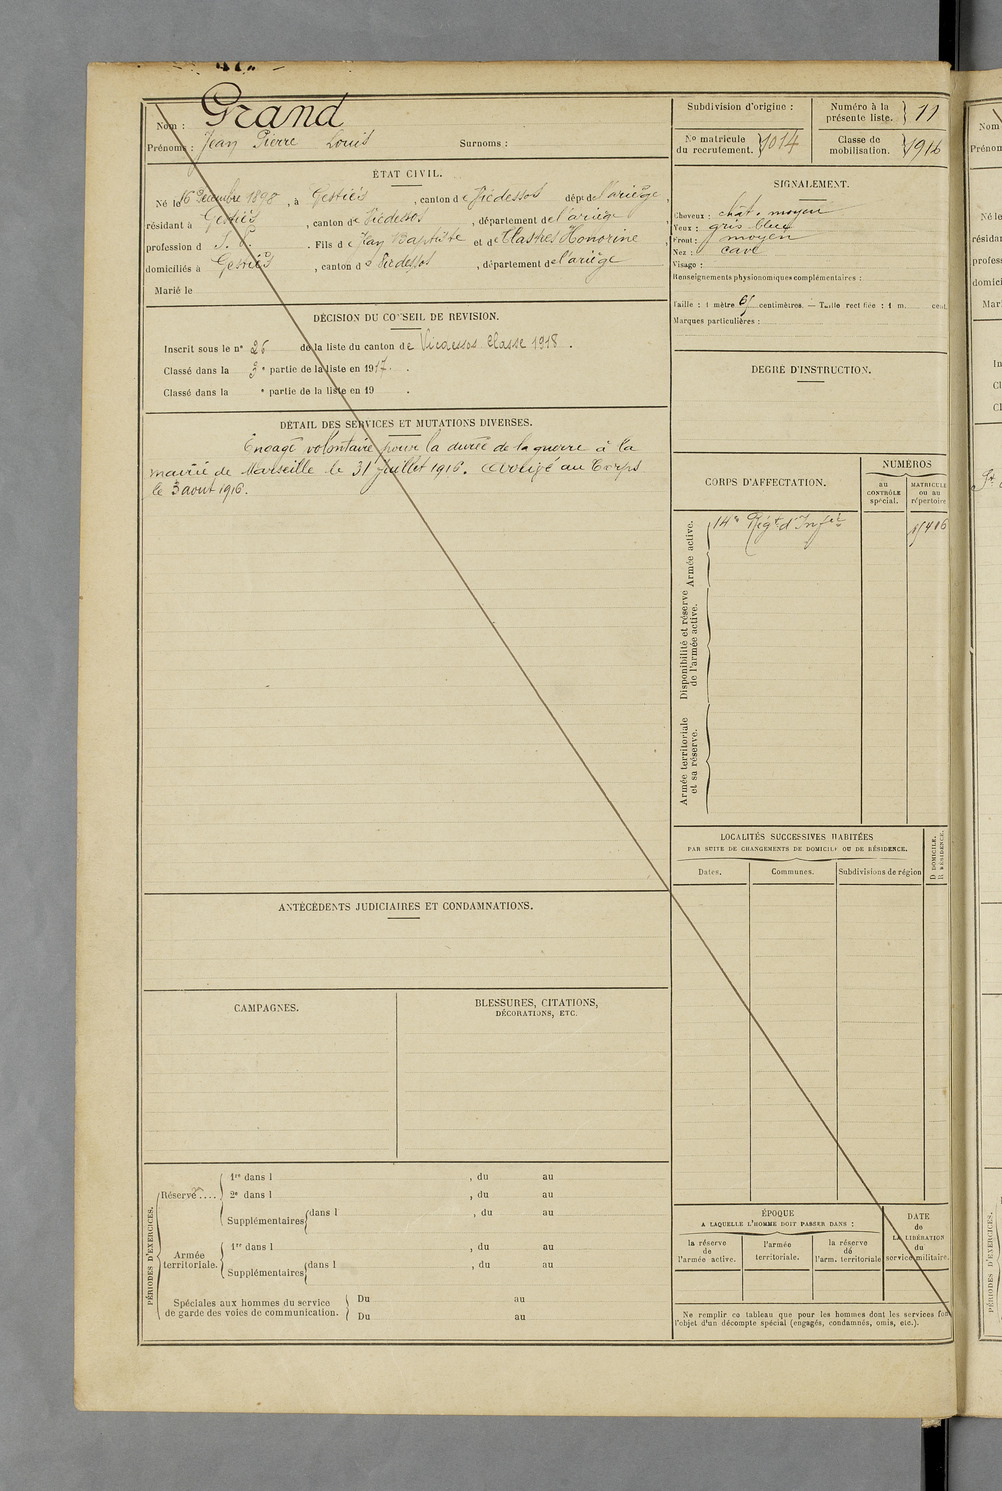 Nom : Grand
Prénoms : Jean Pierre Louis Surnoms :
ÉTAT CIVIL.
Né le 16 Décembre 1898, à Gestiés, canton de Vicdessos dépt de l'ariège,
résidant à Gestiés, canton de Vicdessos, département de l'ariège
profession d S. P. . Fils de Jean Baptiste et de Clastres Honorine,
domiciliés à Gestiés, canton de Vicdessos, département de l'ariège
Marié le
DÉCISION DU CONSEIL DE REVISION.
Inscrit sous le n° 26 de la liste du canton de Vicdessos Classe 1918.
Classé dans la 3e partie de la liste en 1917.
Classé dans la e partie de la liste en 19 .
DÉTAIL DES SERVICES ET MUTATIONS DIVERSES.
Engagé volontaire pour la durée de la guerre à la
mairie de Marseille le 31 Juillet 1916. au Corps
le 3 aout 1916.
ANTÉCÉDENTS JUDICIAIRES ET CONDAMNATIONS.
CAMPAGNES.
BLESSURES, CITATIONS,
DÉCORATIONS, ETC.
PÉRIODES D'EXERCICES.
Réserve....
1re dans l , du au
2e dans l , du au
Supplémentaires dans l , du au
Armée
territoriale.
1re dans l , du au
Supplémentaires dans l , du au
Spéciales aux hommes du service
de garde des voies de communication.
Du au
Du au
Subdivision d'origine :
Numéro à la
présente liste. 11
N° matricule
du recrutement. 1014
Classe de
mobilisation. 1916
SIGNALEMENT.
Cheveux : chât. moyen
Yeux : gris bleu
Front : moyen
Nez : cave
Visage :
Renseignements physionomiques complémentaires :
Taille : 1 mètre 65 centimètres. — Taille rectifiée : 1 m. cent.
Marques particulières :
DEGRÉ D'INSTRUCTION.
CORPS D'AFFECTATION.
NUMÉROS
au
CONTRÔLE
spécial.
MATRICULE
ou au
répertoire
Armée active.
14e Régt d'Infie
Disponibilité et réserve
de l'armée active.
Armée territoriale
et sa réserve.
LOCALITÉS SUCCESSIVES HABITÉES
PAR SUITE DE CHANGEMENTS DE DOMICILE OU DE RÉSIDENCE.
D DOMICILE.
R RÉSIDENCE.
Dates.
Communes.
Subdivisions de région
ÉPOQUE
A LAQUELLE L'HOMME DOIT PASSER DANS :
la réserve
de
l'armée active.
l'armée
territoriale.
la réserve
de
l'arm. territoriale
DATE
de
LA LIBÉRATION
du
service militaire.
Ne remplir ce tableau que pour les hommes dont les services font
l'objet d'un décompte spécial (engagés, condamnés, omis, etc.).